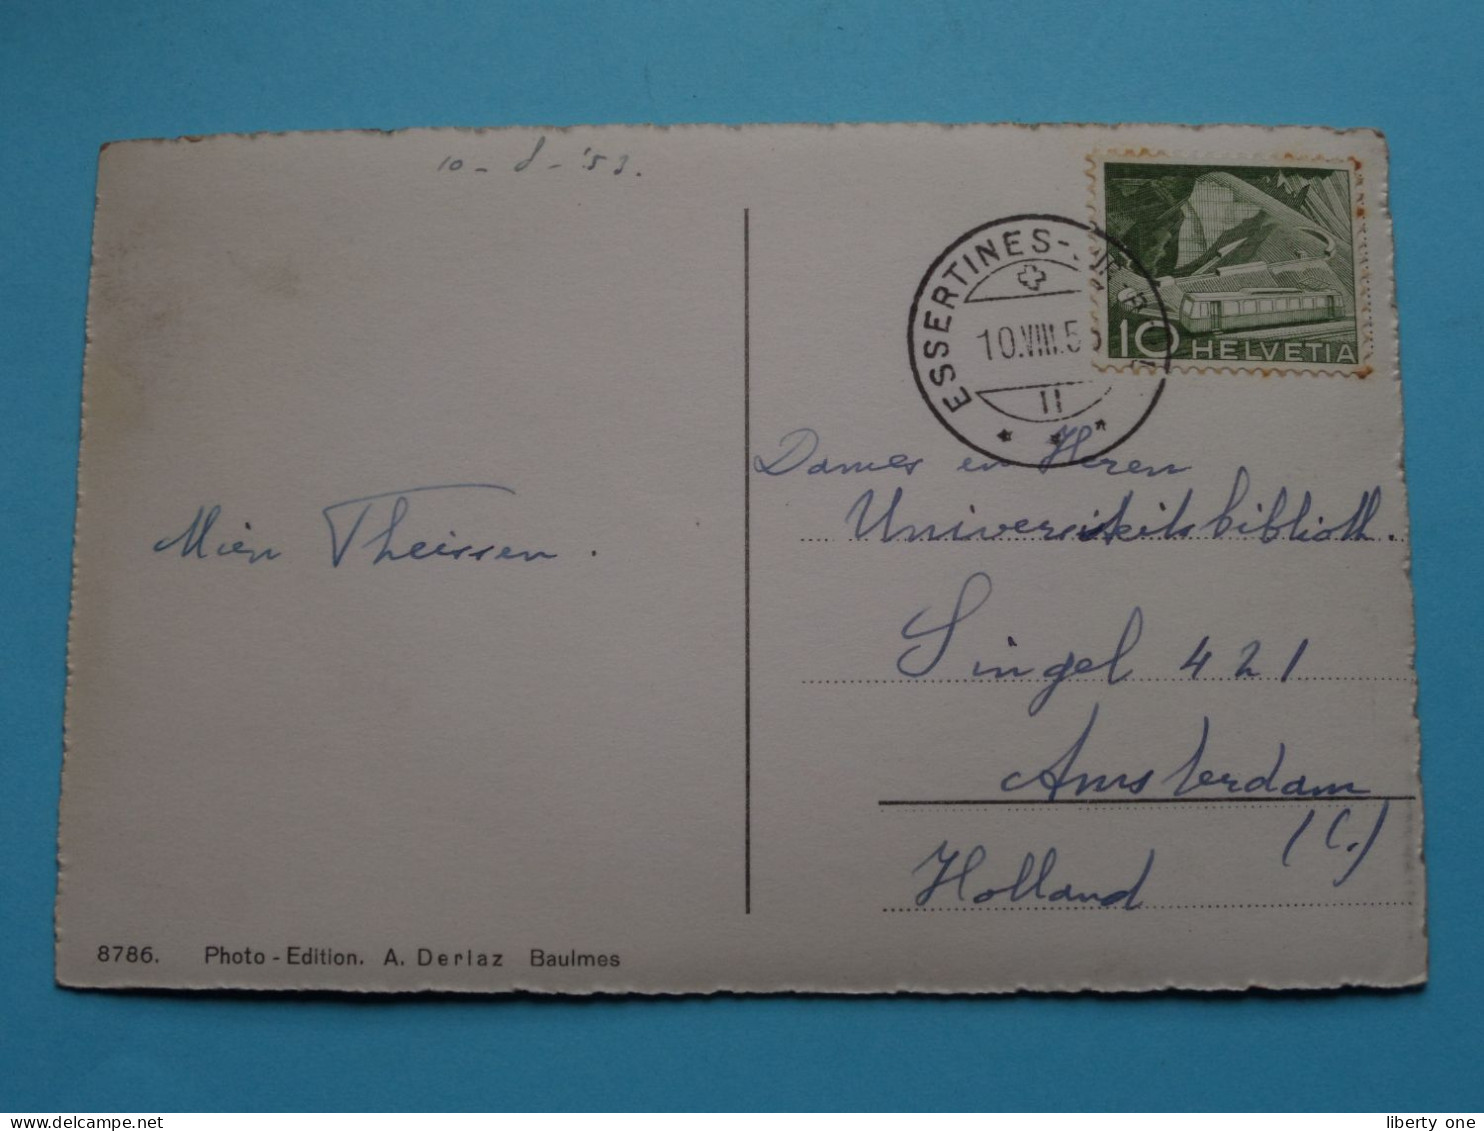 10-8-'53.
ESSERTINES-
10.VIII.5
10 HELVETIA
Dames en Heren
Universiteitsbiblioth.
Mien Theissen.
Singel 421
Amsterdam
(C.)
Holland
8786. Photo-Edition. A. Derlaz Baulmes
liberty one